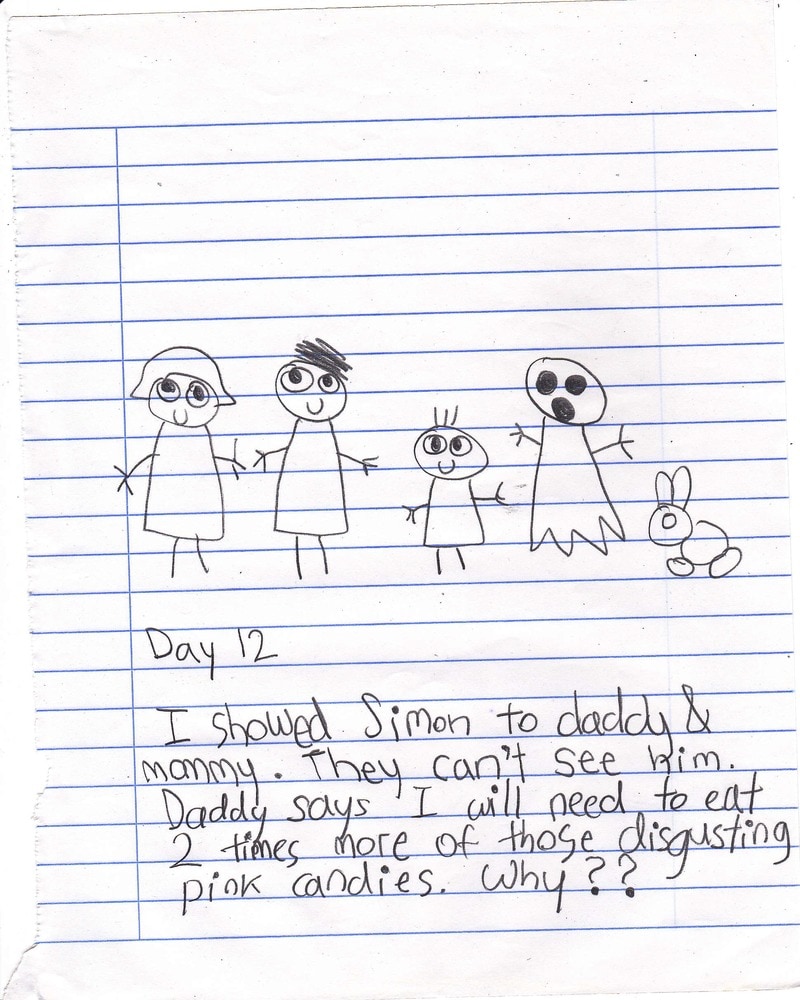 Day 12
I showed Simon to daddy &
mommy. They can't see him.
Daddy says I will need to eat
2 times more of those disgusting
pink candies. Why??